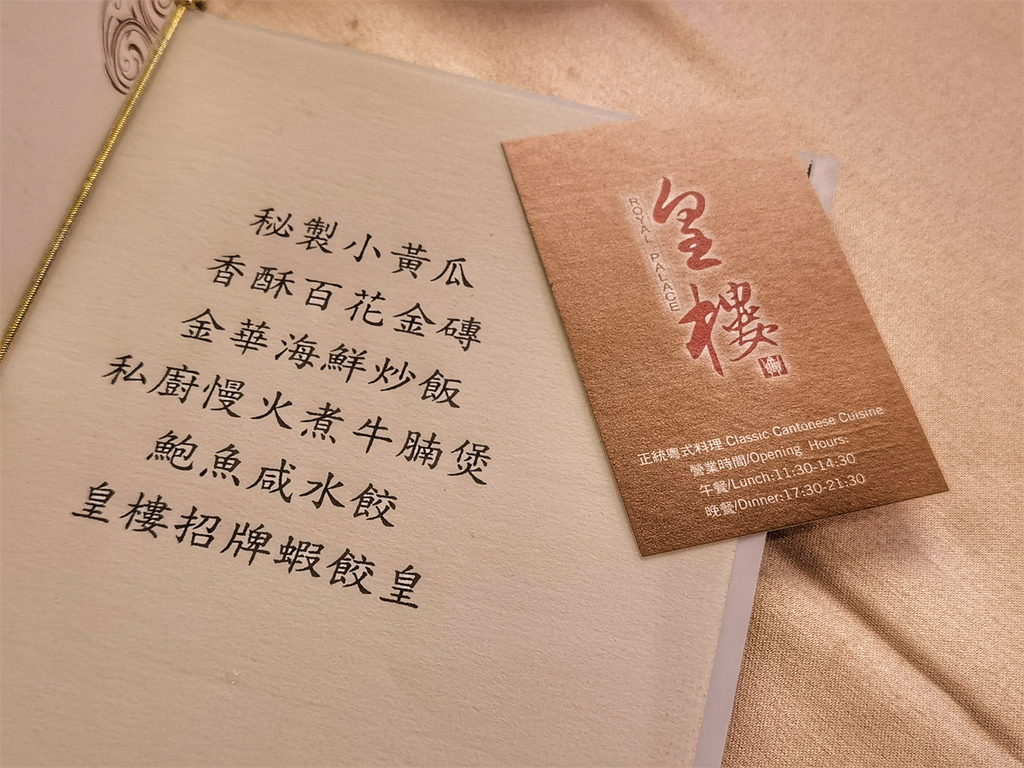 秘製小黃瓜
香酥百花金磚
金華海鮮炒飯
私廚慢火煮牛腩煲
鮑魚咸水餃
皇樓招牌蝦餃皇
皇樓
ROYAL PALACE
正統粵式料理 Classic Cantonese Cuisine
營業時間/Opening Hours:
午餐/Lunch:11:30-14:30
晚餐/Dinner:17:30-21:30